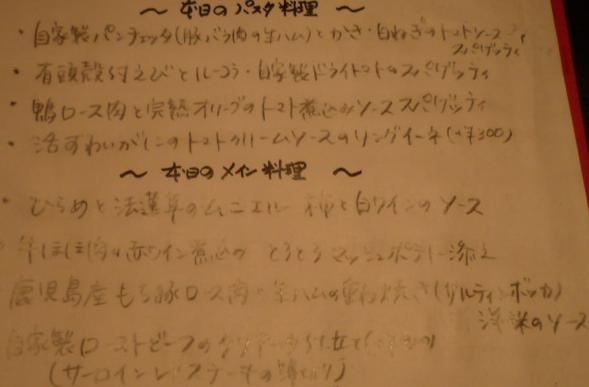 ～ 本日のパスタ料理 ～
・自家製パンチェッタ(豚バラ肉の生ハム)とかき・白ねぎのトマトソース
スパゲッティ
・有頭殻付えびとルッコラ・自家製ドライトマトのスパゲッティ
・鴨ロース肉と完熟オリーブのトマト煮込みソース スパゲッティ
・活ずわいがにのトマトクリームソースのリングイーネ(+¥300)
～ 本日のメイン料理 ～
・ひらめと法蓮草のムニエル 柿と白ワインのソース
牛ほほ肉の赤ワイン煮込み とろとろマッシュポテト添え
鹿児島産もち豚ロース肉と生ハムの重ね焼き(サルティンボッカ)
のソース
自家製ローストビーフの
(サーロイン